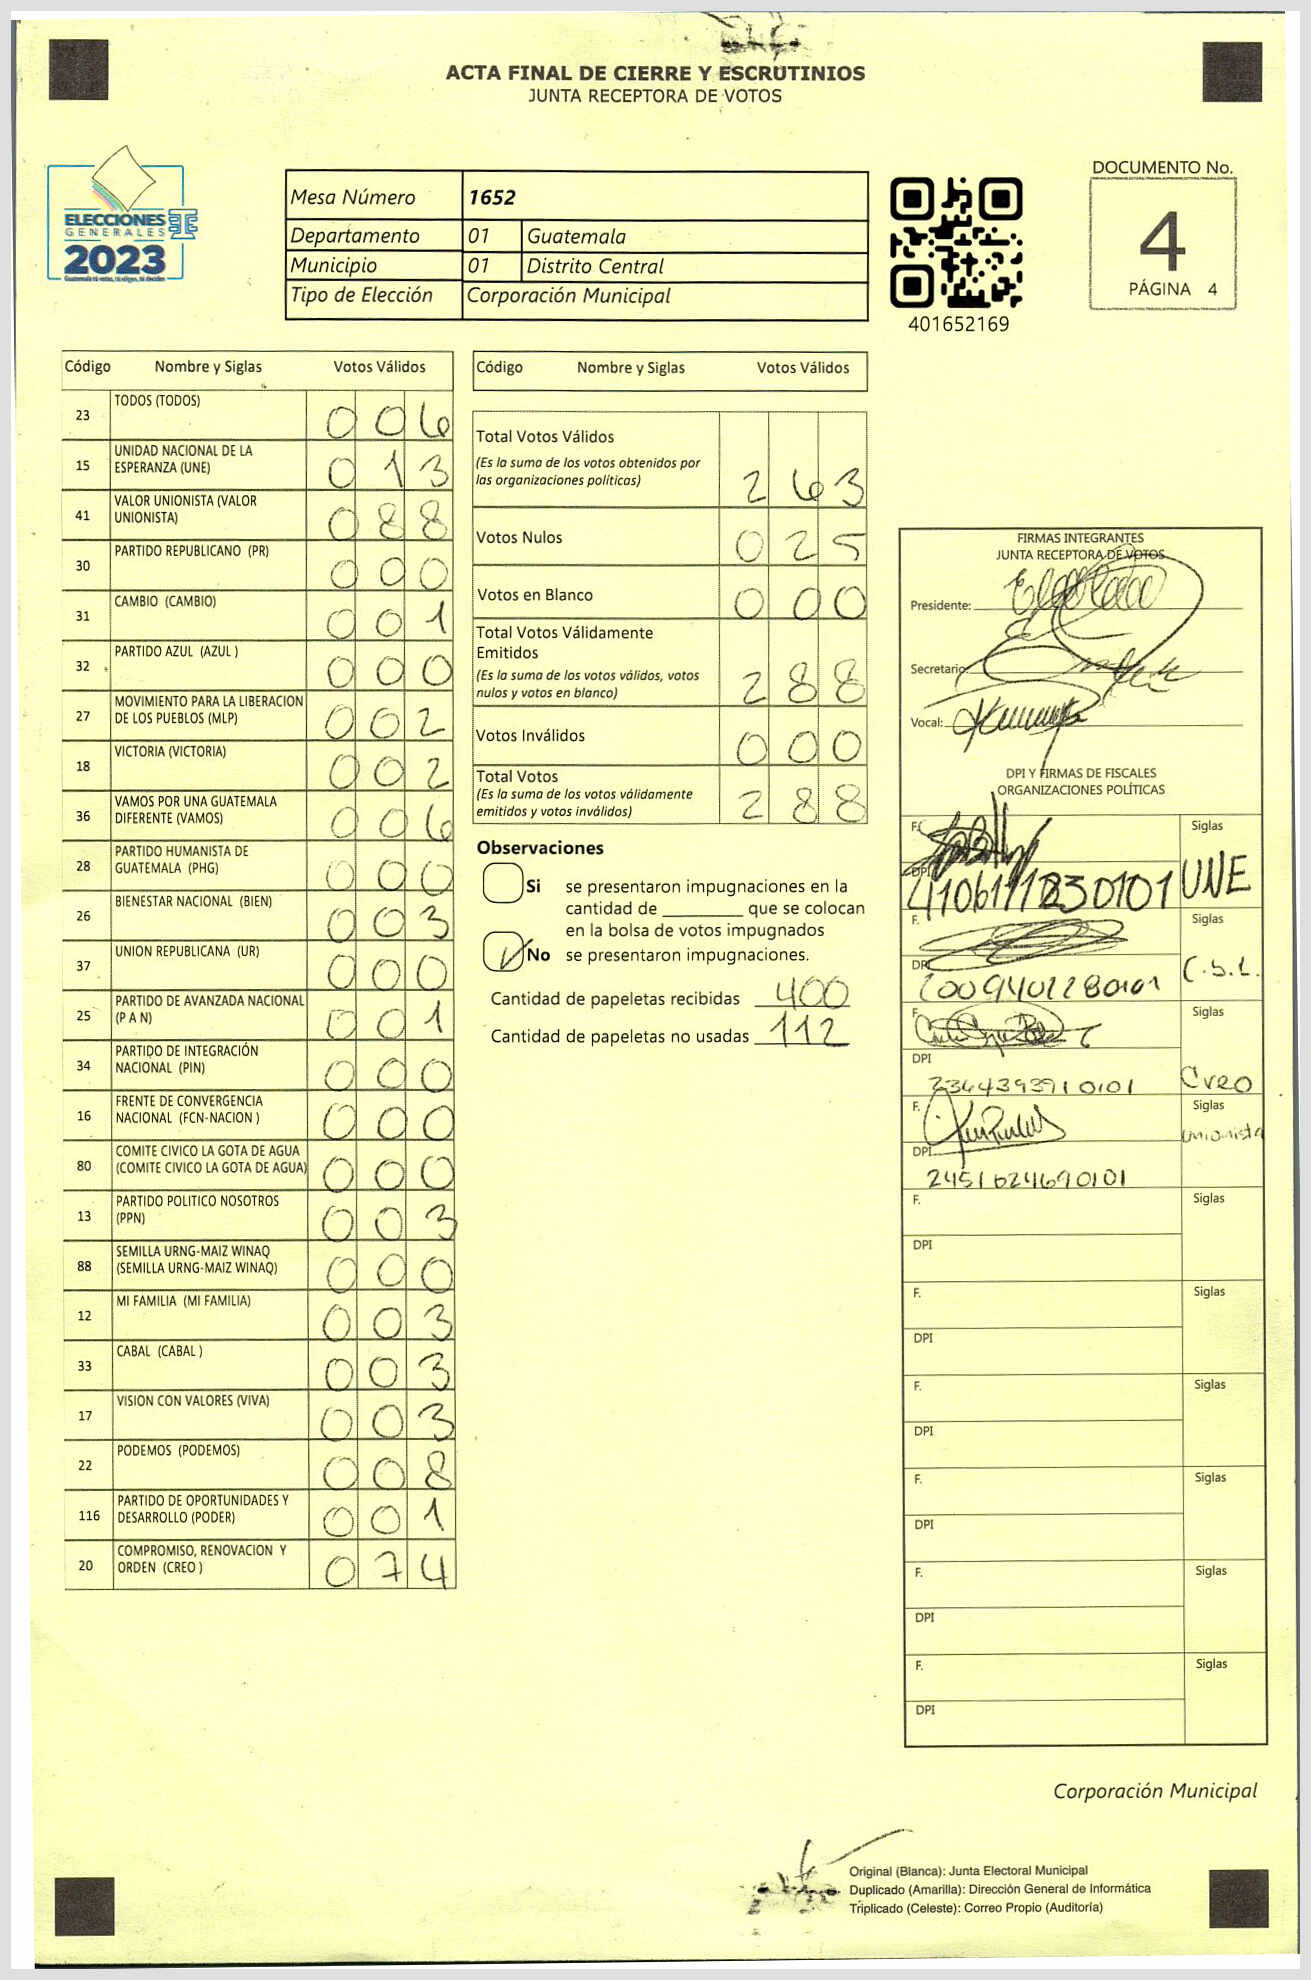 ACTA FINAL DE CIERRE Y ESCRUTINIOS
JUNTA RECEPTORA DE VOTOS
ELECCIONES
GENERALES
2023
Mesa Número 1652
Departamento 01 Guatemala
Municipio 01 Distrito Central
Tipo de Elección Corporación Municipal
401652169
DOCUMENTO No.
4
PÁGINA 4
Código Nombre y Siglas Votos Válidos
23 TODOS (TODOS) 0 0 6
15 UNIDAD NACIONAL DE LA
ESPERANZA (UNE) 0 1 3
41 VALOR UNIONISTA (VALOR
UNIONISTA) 0 8 8
30 PARTIDO REPUBLICANO (PR) 0 0 0
31 CAMBIO (CAMBIO) 0 0 1
32 PARTIDO AZUL (AZUL ) 0 0 0
27 MOVIMIENTO PARA LA LIBERACION
DE LOS PUEBLOS (MLP) 0 0 2
18 VICTORIA (VICTORIA) 0 0 2
36 VAMOS POR UNA GUATEMALA
DIFERENTE (VAMOS) 0 0 6
28 PARTIDO HUMANISTA DE
GUATEMALA (PHG) 0 0 0
26 BIENESTAR NACIONAL (BIEN) 0 0 3
37 UNION REPUBLICANA (UR) 0 0 0
25 PARTIDO DE AVANZADA NACIONAL
(P A N) 0 0 1
34 PARTIDO DE INTEGRACIÓN
NACIONAL (PIN) 0 0 0
16 FRENTE DE CONVERGENCIA
NACIONAL (FCN-NACION ) 0 0 0
80 COMITE CIVICO LA GOTA DE AGUA
(COMITE CIVICO LA GOTA DE AGUA) 0 0 0
13 PARTIDO POLITICO NOSOTROS
(PPN) 0 0 3
88 SEMILLA URNG-MAIZ WINAQ
(SEMILLA URNG-MAIZ WINAQ) 0 0 0
12 MI FAMILIA (MI FAMILIA) 0 0 3
33 CABAL (CABAL ) 0 0 3
17 VISION CON VALORES (VIVA) 0 0 3
22 PODEMOS (PODEMOS) 0 0 8
116 PARTIDO DE OPORTUNIDADES Y
DESARROLLO (PODER) 0 0 1
20 COMPROMISO, RENOVACION Y
ORDEN (CREO ) 0 7 4
Código Nombre y Siglas Votos Válidos
Total Votos Válidos
(Es la suma de los votos obtenidos por
las organizaciones políticas) 2 6 3
Votos Nulos 0 2 5
Votos en Blanco 0 0 0
Total Votos Válidamente
Emitidos
(Es la suma de los votos válidos, votos
nulos y votos en blanco) 2 8 8
Votos Inválidos 0 0 0
Total Votos
(Es la suma de los votos válidamente
emitidos y votos inválidos) 2 8 8
Observaciones
Si se presentaron impugnaciones en la
cantidad de ________ que se colocan
en la bolsa de votos impugnados
No se presentaron impugnaciones.
Cantidad de papeletas recibidas 400
Cantidad de papeletas no usadas 112
FIRMAS INTEGRANTES
JUNTA RECEPTORA DE VOTOS
Presidente:
Secretario:
Vocal:
DPI Y FIRMAS DE FISCALES
ORGANIZACIONES POLÍTICAS
F. Siglas
DPI UNE
F. Siglas
DPI C.S.L.
F. Siglas
DPI
2344393910101 Creo
F. Siglas
DPI unionista
2451624690101
F. Siglas
DPI
F. Siglas
DPI
F. Siglas
DPI
F. Siglas
DPI
F. Siglas
DPI
F. Siglas
DPI
Corporación Municipal
Original (Blanca): Junta Electoral Municipal
Duplicado (Amarilla): Dirección General de Informática
Triplicado (Celeste): Correo Propio (Auditoría)